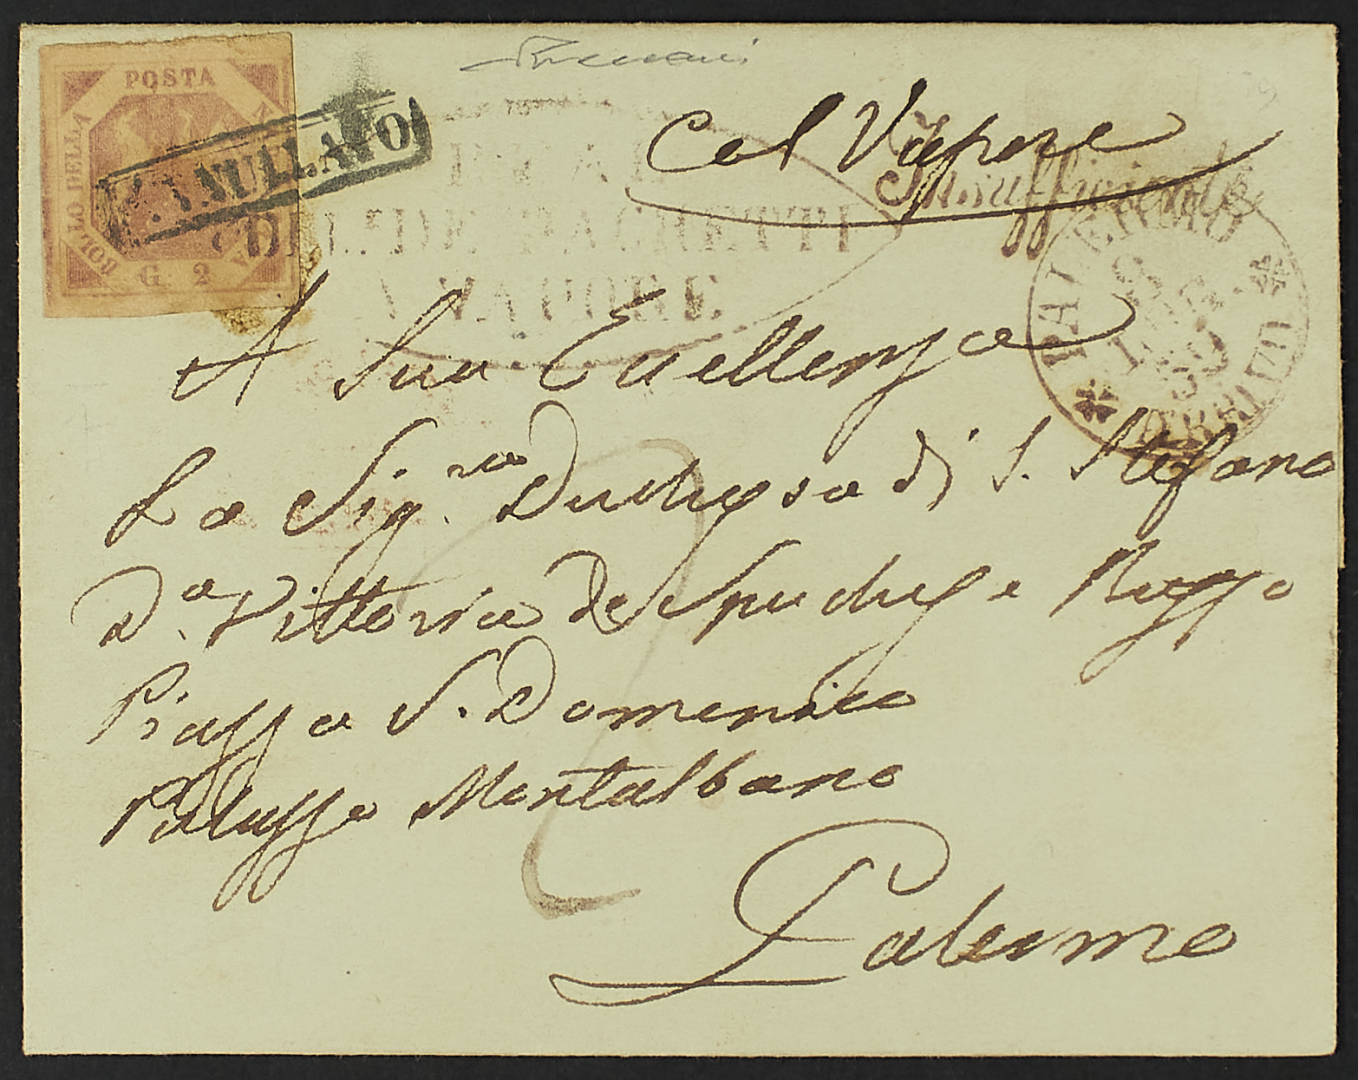 POSTA
BOLLO DELLA
G. 2
ANNULLATO
Col Vapore
Insufficiente
REAL
DEL. DE PACHETTI
A VAPORE
PALERMO
ARRIVO
A Sua Eccellenza
La Sig.ra Duchessa di S. Stefano
D.a Vittoria de Spuches e Ruffo
Piazza S. Domenico
Palazzo Montalbano
Palermo